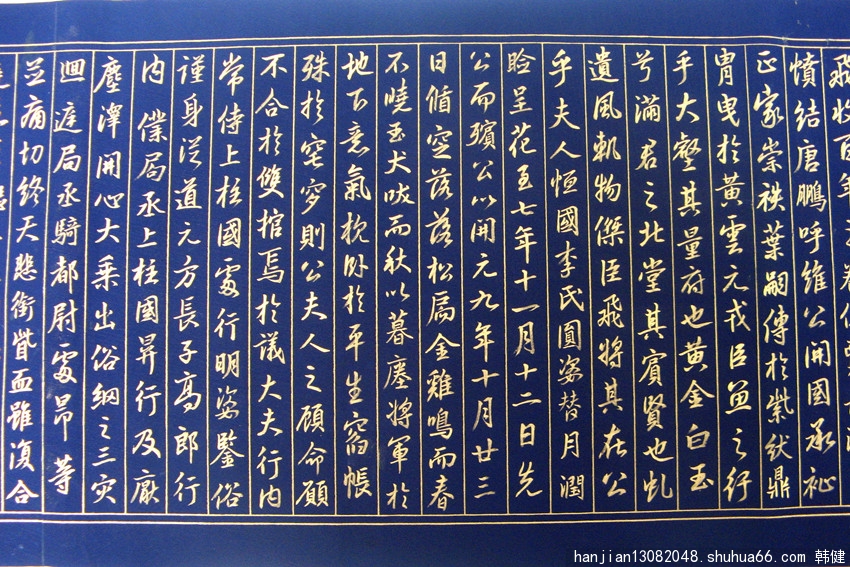 憤結唐鵬呼維公開國承祉
正家崇袟葉嗣傳於紫紱鼎
胄曳於黃雲元戎臣並之行
乎大壑其量府也黃金白玉
兮滿君之北堂其賓賢也虬
遺風軌物傑臣飛將其在公
乎夫人恒國李氏圓姿替月潤
臉呈花至七年十一月十二日先
公而殯公以開元九年十月廿三
日脩空落落松扃金雞鳴而春
不曉玉犬吠而秋以暮塵將軍於
地下意氣枕臥於平生窅帳
殊於窀穸則公夫人之顧命顧
不合於雙棺焉於議大夫行內
常侍上柱國雯行明姿鑒俗
謹身從道元方長子高郎行
內僕局丞上柱國昇行及廠
塵澤開心大乘出俗網之三灾
迴庭局丞騎都尉雯昂等
並痛切終天悲銜觜面雖復合
hanjian13082048.shuhua66.com 韩健